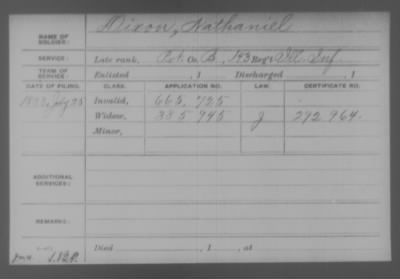 NAME OF SOLDIER: Dixon, Nathaniel
SERVICE: Late rank, Pvt. Co. B, 143 Reg't Ill. Inf
TERM OF SERVICE: Enlisted , 1 Discharged , 1
DATE OF FILING. CLASS. APPLICATION NO. LAW. CERTIFICATE NO.
July 25 Invalid, 665,725
Widow, 885 945 J 292 964.
Minor,
ADDITIONAL SERVICES:
REMARKS:
Died , 1 , at